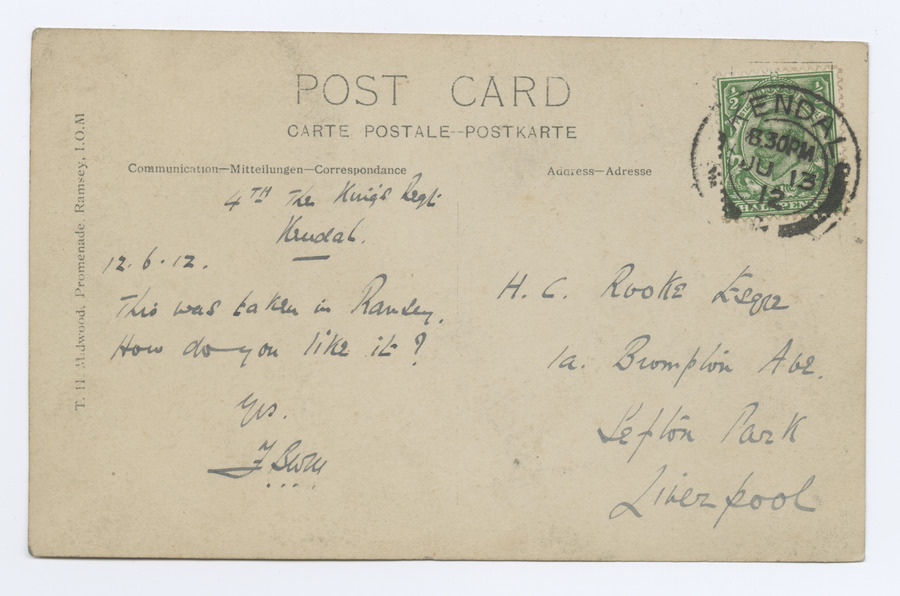 POST CARD
CARTE POSTALE--POSTKARTE
Communication—Mitteilungen—Correspondance
Address—Adresse
T. H. Midwood, Promenade, Ramsey, I.O.M
4TH The King's Regt
Kendal.
12.6.12.
This was taken in Ramsey.
How do you like it?
Yrs.
H. C. Rooke Esqre
1a. Brompton Ave.
Sefton Park
Liverpool
KENDAL
8.30PM
JU 13
12
1/2 1/2
HALFPENNY